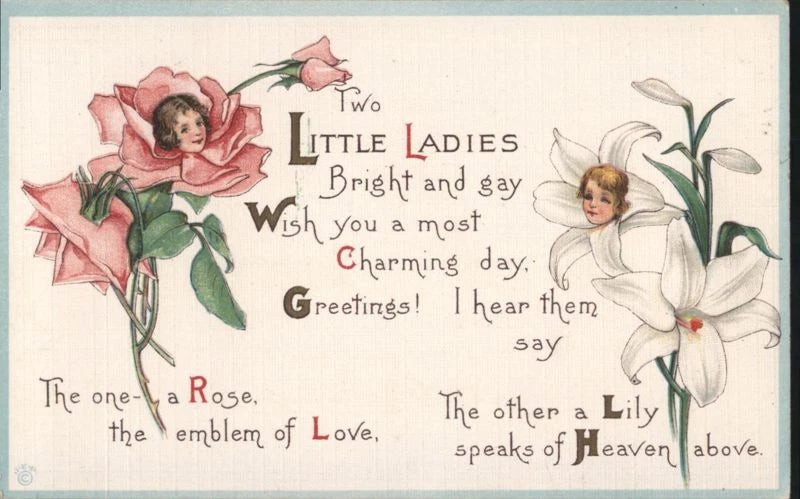 Two
LITTLE LADIES
Bright and gay
Wish you a most
Charming day,
Greetings! I hear them
say
The one- a Rose,
the emblem of Love,
The other a Lily
speaks of Heaven above.
©